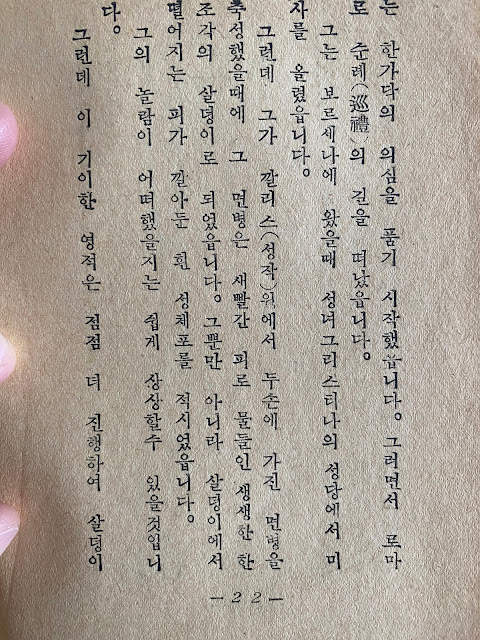 는 한가닥의 의심을 품기 시작했읍니다. 그러면서 로마
로 준례(巡禮)의 길을 떠났읍니다.
그는 보르세나에 왔을때 성녀그리스티나의 성당에서 미
사를 올렸읍니다.
그런데 그가 깔리스(성작)위에서 두손에 가진 면병을
축성했을때에 그 면병은 새빨간 피로 물들인 생생한 한
조각의 살덩이로 되었읍니다. 그뿐만 아니라 살덩이에서
떨어지는 피가 깔아둔 흰 성체포를 적시었읍니다.
그의 놀람이 어떠했을지는 쉽게 상상할수 있을것입니
다.
그런데 이 기이한 영적은 점점 더 진행하여 살덩이
—22—